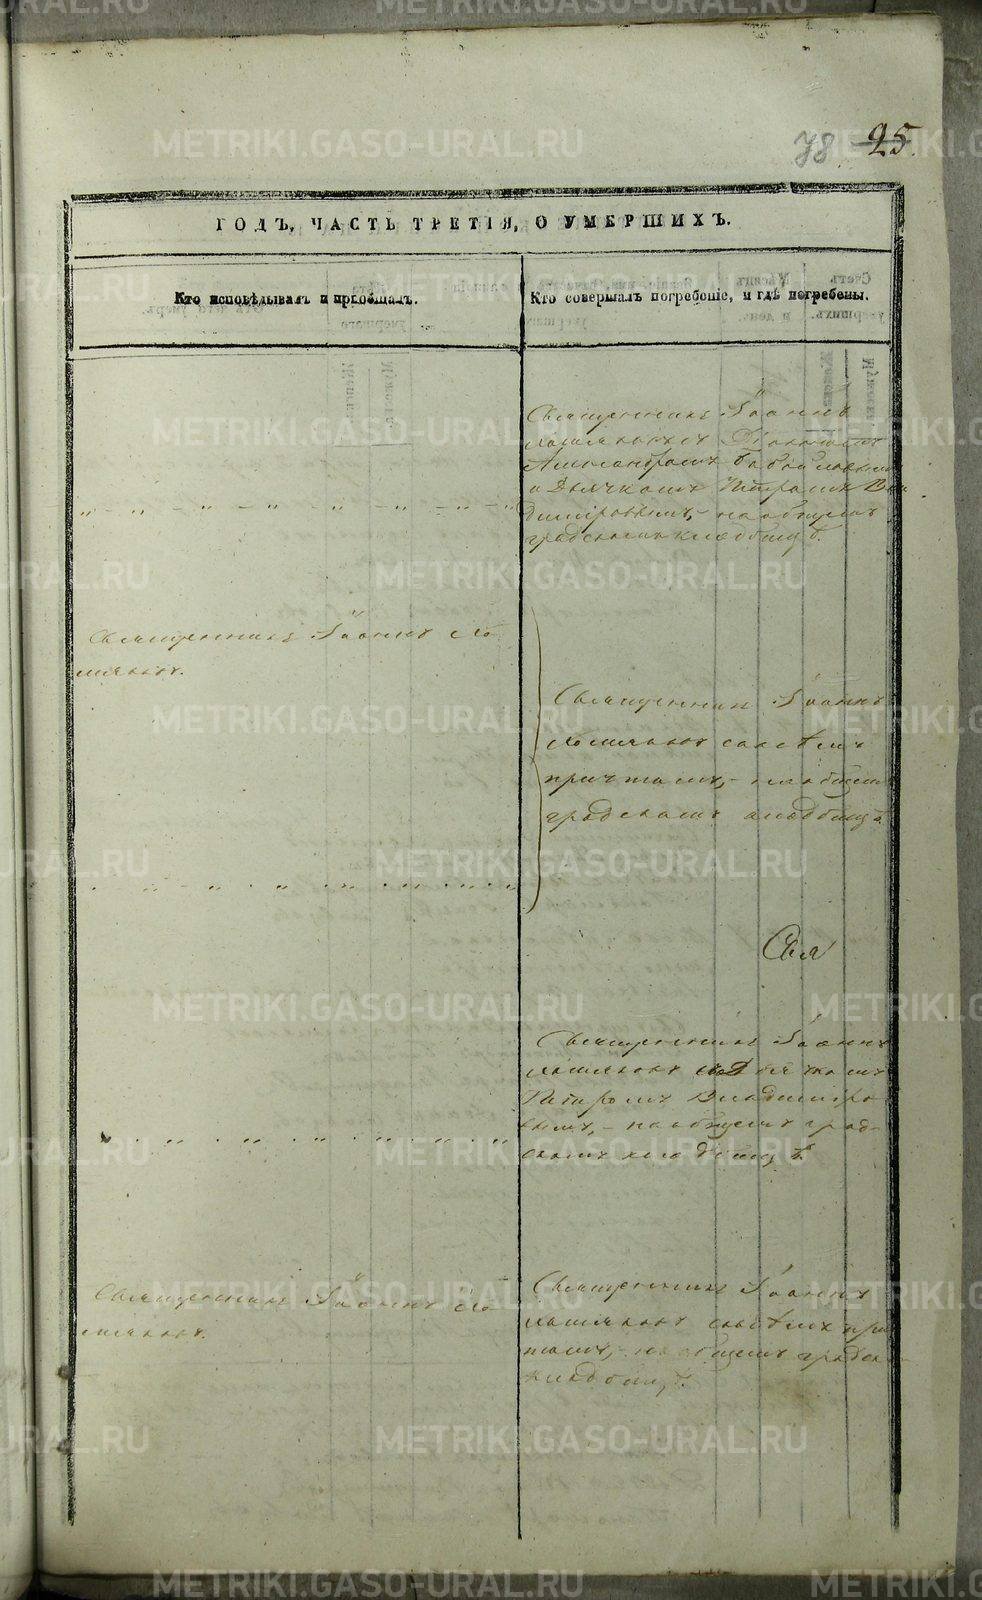 78 25.
ГОДЪ, ЧАСТЬ ТРЕТІЯ, О УМЕРШИХЪ.
Кто исповѣдывалъ и пріобщалъ.
Кто совершалъ погребеніе, и гдѣ погребены.
Священникъ Іоаннъ
Хомяковъ съ Діакономъ
Александромъ
и Дьячкомъ Петромъ Вла
диміровымъ, на общемъ
градскомъ кладбищѣ.
Священникъ Іоаннъ Хо
мяковъ.
Священникъ Іоаннъ
Хомяковъ со всѣмъ
причтомъ, на общемъ
градскомъ кладбищѣ.
Свя
Священникъ Іоаннъ
Хомяковъ съ Дьячкомъ
Петромъ Владиміро
вымъ, на общемъ град
скомъ кладбищѣ.
Священникъ Іоаннъ Хо
мяковъ.
Священникъ Іоаннъ
Хомяковъ со всѣмъ при
томъ, на общемъ градск
кладбищѣ.
METRIKI.GASO-URAL.RU